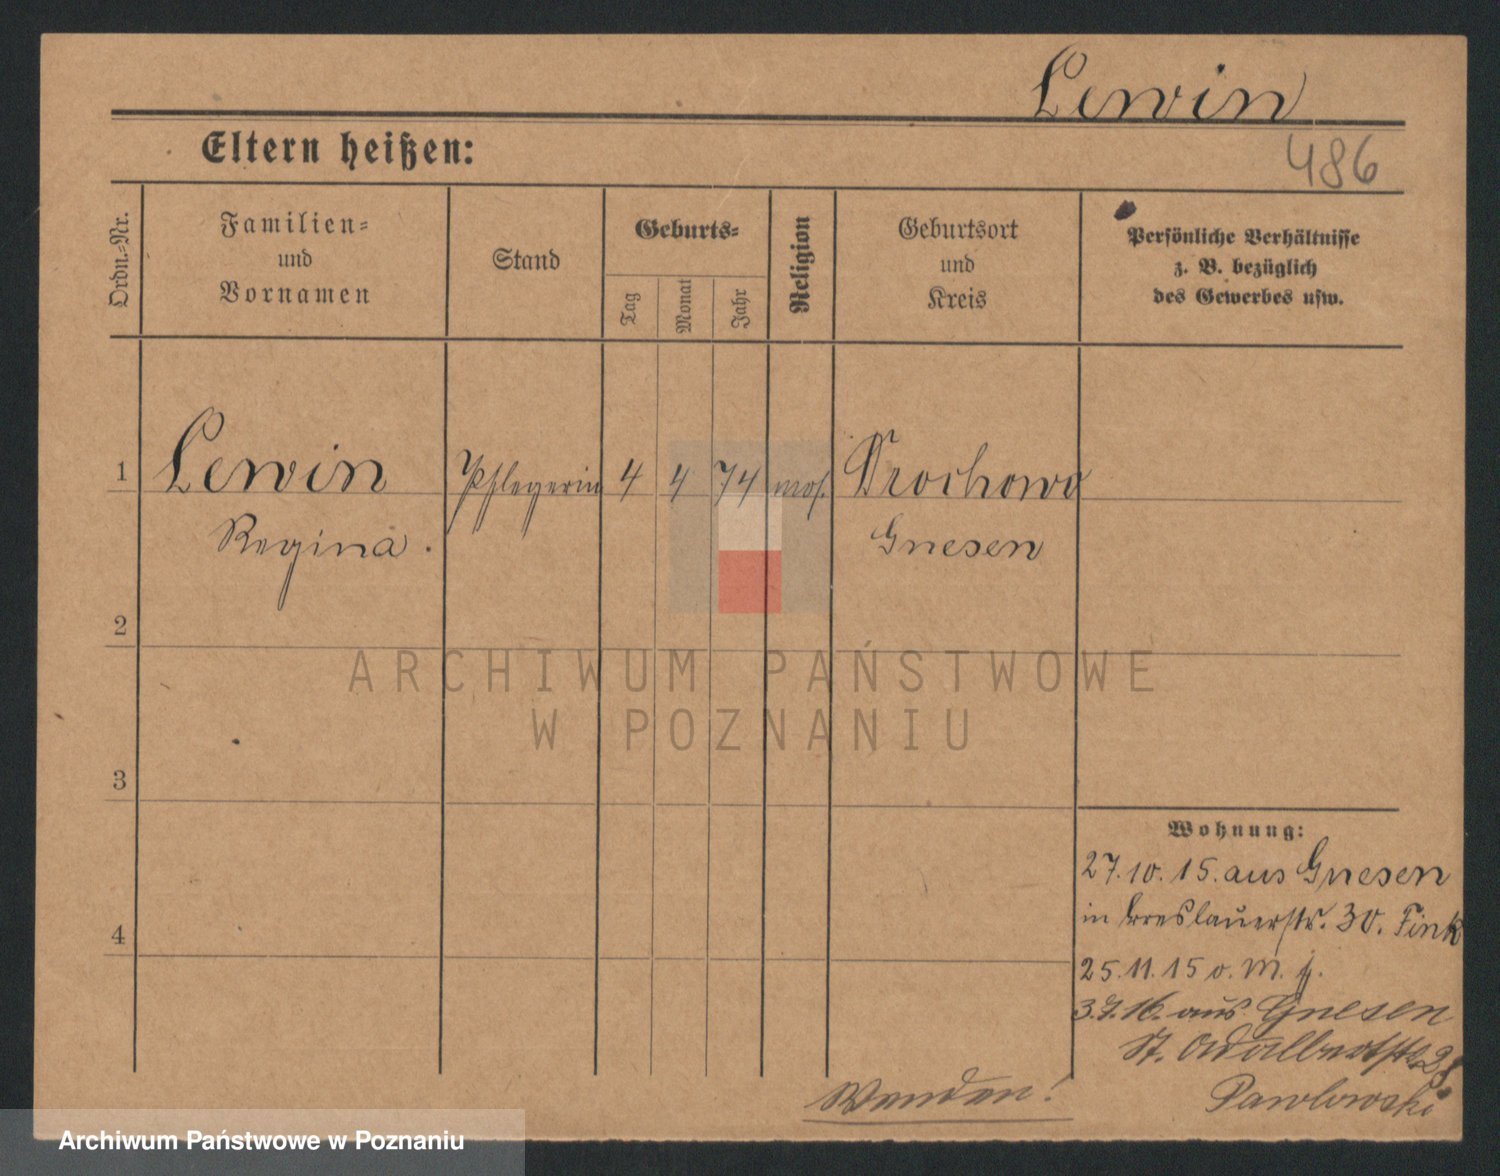 Lewin
Eltern heißen:
486
Ordn.-Nr.
Familien-
und
Vornamen
Stand
Geburts-
Tag
Monat
Jahr
Religion
Geburtsort
und
Kreis
Persönliche Verhältnisse
z. B. bezüglich
des Gewerbes usw.
1 Lewin Pflegerin 4 4 74 mos. Drochowo
Regina. Gnesen
2
3
4
ARCHIWUM PAŃSTWOWE
W POZNANIU
Wohnung:
27.10.15. aus Gnesen
in Breslauerstr. 30. Fink
25.11.15 o. M.
3.7.16. aus Gnesen
St. Adalbertstr. 28
Pawlowski
Wenden!
Archiwum Państwowe w Poznaniu